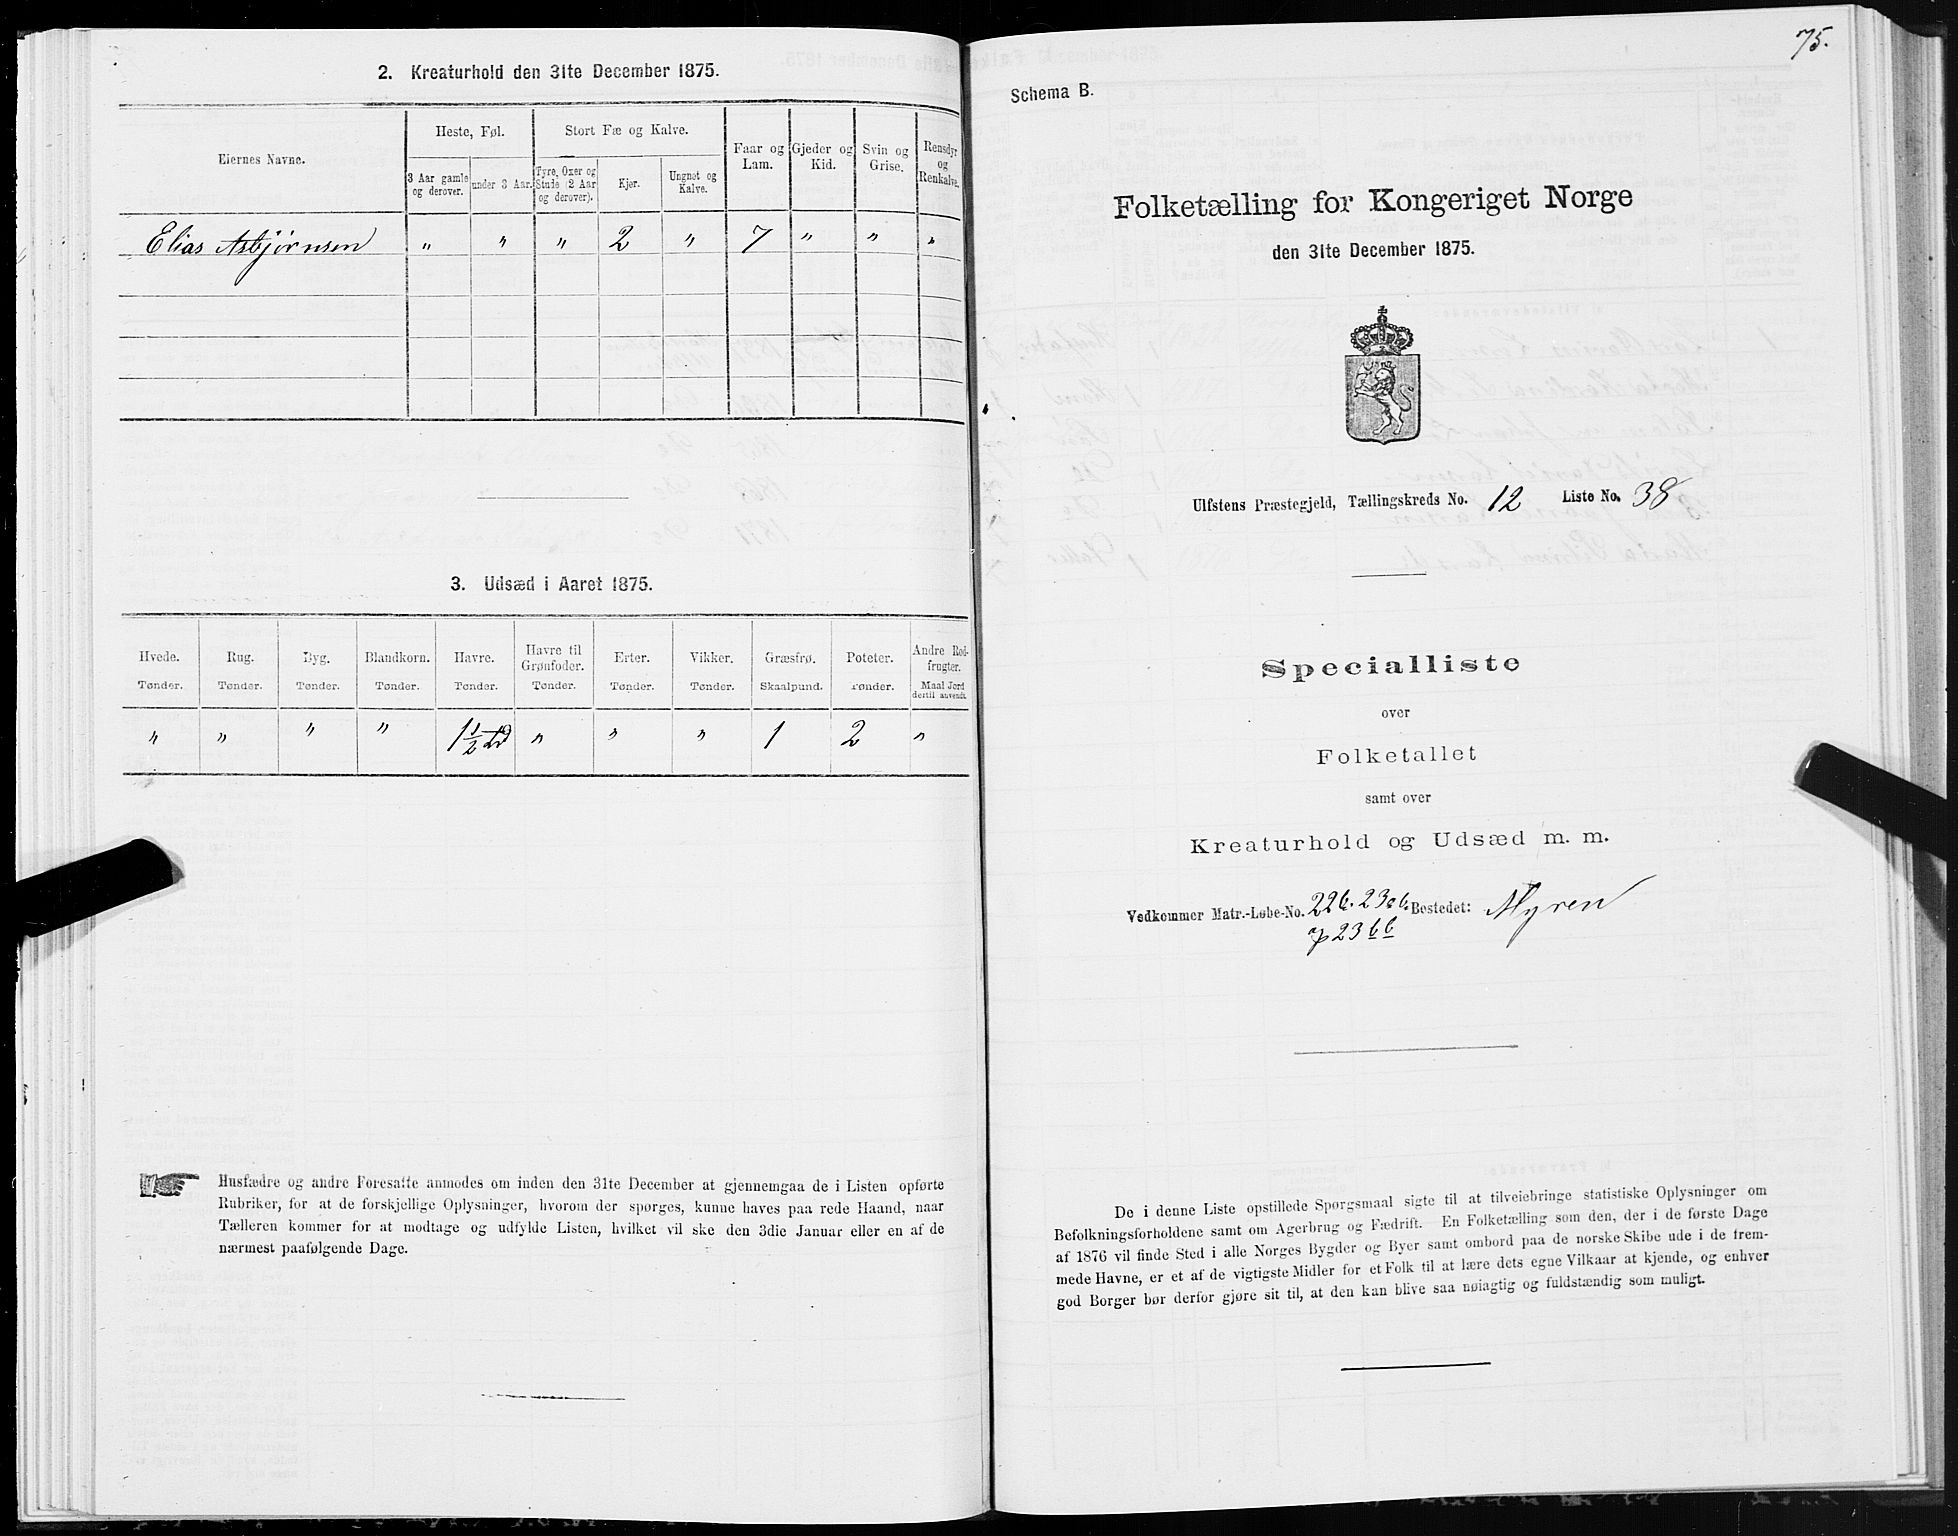 2. Kreaturhold den 31te December 1875.
Eiernes Navne.
Heste, Føl.
Stort Fæ og Kalve.
Faar og Lam.
Gjeder og Kid.
Svin og Grise.
Rensdyr og Renkalve.
3 Aar gamle og derover.
under 3 Aar.
Tyre, Oxer og Stude (2 Aar og derover).
Kjør.
Ungnøt og Kalve.
Elias Asbjørnsen " " " 2 " 7 " " "
3. Udsæd i Aaret 1875.
Hvede. Rug. Byg. Blandkorn. Havre. Havre til Grønfoder. Erter. Vikker. Græsfrø. Poteter. Andre Rodfrugter.
Tønder. Tønder. Tønder. Tønder. Tønder. Tønder. Tønder. Tønder. Skaalpund. Tønder. Maal Jord dertil anvendt.
" " " " 1 1/2 " " " 1 2 "
Husfædre og andre Foresatte anmodes om inden den 31te December at gjennemgaa de i Listen opførte
Rubriker, for at de forskjellige Oplysninger, hvorom der spørges, kunne haves paa rede Haand, naar
Tælleren kommer for at modtage og udfylde Listen, hvilket vil ske den 3die Januar eller en af de
nærmest paafølgende Dage.
75.
Schema B.
Folketælling for Kongeriget Norge
den 31te December 1875.
Ulfstens Præstegjeld, Tællingskreds No. 12 Liste No. 38
Specialliste
over
Folketallet
samt over
Kreaturhold og Udsæd m. m.
Vedkommer Matr.-Løbe-No. 22b. 23ab. Bostedet: Myren
23bb
De i denne Liste opstillede Spørgsmaal sigte til at tilveiebringe statistiske Oplysninger om
Befolkningsforholdene samt om Agerbrug og Fædrift. En Folketælling som den, der i de første Dage
af 1876 vil finde Sted i alle Norges Bygder og Byer samt ombord paa de norske Skibe ude i de frem-
mede Havne, er et af de vigtigste Midler for et Folk til at lære dets egne Vilkaar at kjende, og enhver
god Borger bør derfor gjøre sit til, at den kan blive saa nøiagtig og fuldstændig som muligt.